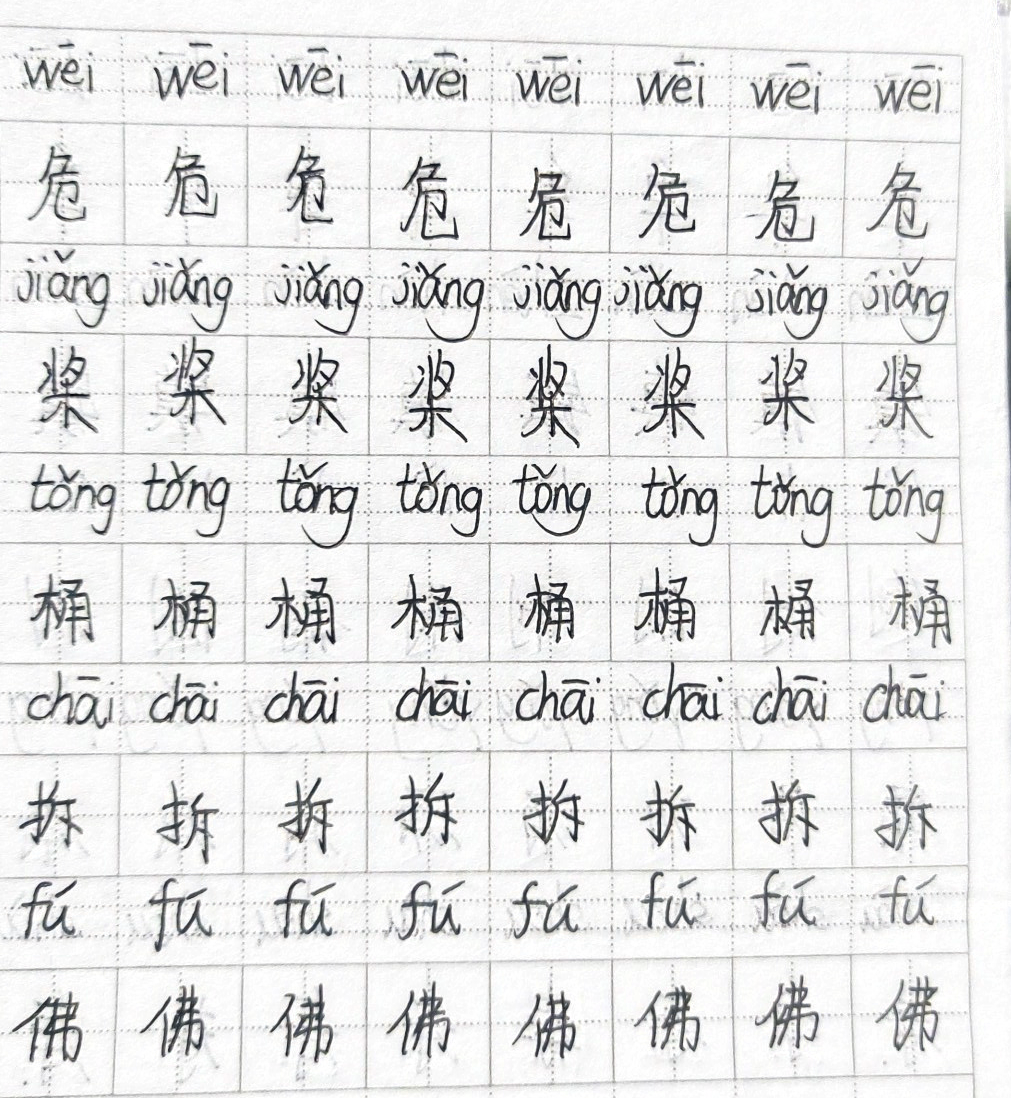 wēi wēi wēi wēi wēi wēi wēi wēi
危 危 危 危 危 危 危 危
jiǎng jiǎng jiǎng jiǎng jiǎng jiǎng jiǎng jiǎng
桨 桨 桨 桨 桨 桨 桨 桨
tǒng tǒng tǒng tǒng tǒng tǒng tǒng tǒng
桶 桶 桶 桶 桶 桶 桶 桶
chāi chāi chāi chāi chāi chāi chāi chāi
拆 拆 拆 拆 拆 拆 拆 拆
fú fú fú fú fú fú fú fú
佛 佛 佛 佛 佛 佛 佛 佛